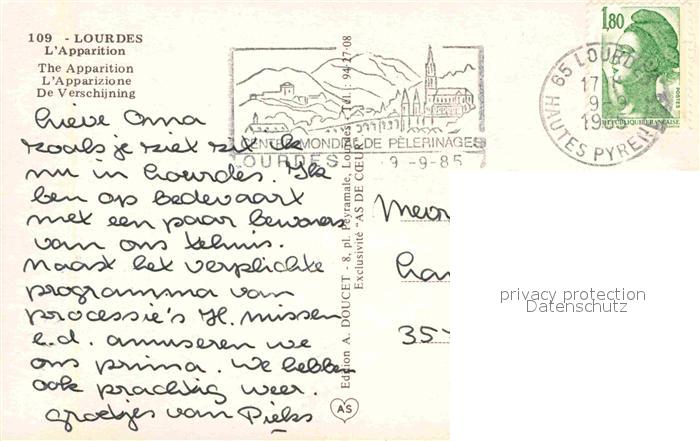 109 - LOURDES
L'Apparition
The Apparition
L'Apparizione
De Verschijning
Lieve Oma
zoals je ziet zit ik
nu in Lourdes. Ik
ben op bedevaart
met een paar bewoners
van ons tehuis.
Naast het verplichte
programma van
processie's H. missen
e.d. amuseren we
ons prima. We hebben
ook prachtig weer.
groetjes van
CENTRE MONDIAL DE PÈLERINAGES
LOURDES 9-9-85
Edition A. DOUCET - 8, pl. Peyramale, Lourdes - Tél.: 94-27-08
Exclusivité "AS DE CŒUR"
AS
1,80
POSTES
REPUBLIQUE FRANÇAISE
65 LOURDES
17 H
9-9
1985
HAUTES PYREN
Mevr
35
privacy protection
Datenschutz